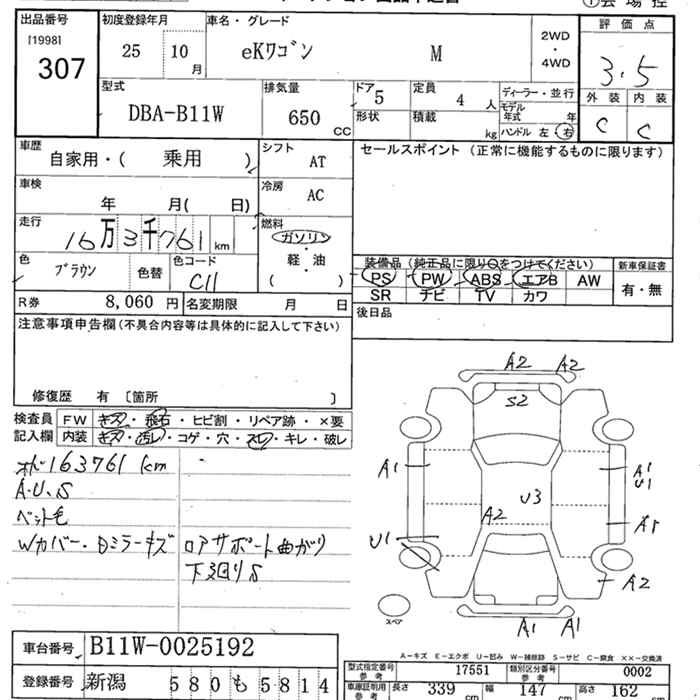 出品番号 初度登録年月 車名・グレード 評価点
[1998]
307
25 10月 eKワゴン M 2WD・4WD 3.5
型式 排気量 ドア 定員 ディーラー・並行 外装 内装
DBA-B11W 650 CC 5 4 人 モデル年式 年 C C
形状 積載 kg ハンドル 左・右
車歴 自家用・( 乗用 ) シフト AT セールスポイント (正常に機能するものに限ります)
車検 年 月( 日) 冷房 AC
走行 16万3千761km 燃料 ガソリン・軽・油 ( )
装備品 (純正品に限り○をつけてください) 新車保証書
色 ブラウン 色替 色コード C11
PS PW ABS エアB AW 有・無
SR ナビ TV カワ
R券 8,060 円 名変期限 月 日 後日品
注意事項申告欄(不具合内容等は具体的に記入して下さい)
修復歴 有 [箇所 ]
検査員 FW キズ・飛石・ヒビ割・リペア跡・×要
記入欄 内装 キズ・汚レ・コゲ・穴・スレ・キレ・破レ
163761km
A.U.S
ペット毛
Wカバー・Dミラーキズ ロアサポート曲がり
下廻りS
A2 A2
S2
A1 A1
U1
U3
A2 A1
U1
A2
A1 A1
スペア
A-キズ E-エクボ U-凹み W-補修跡 S-サビ C-腐食 ××-交換済
車台番号 B11W-0025192
登録番号 新潟 580 も 5814
型式指定番号 参考 17551 類別区分番号 参考 0002
車庫証明用 参考 長さ 339 cm 幅 147 cm 高さ 162 cm